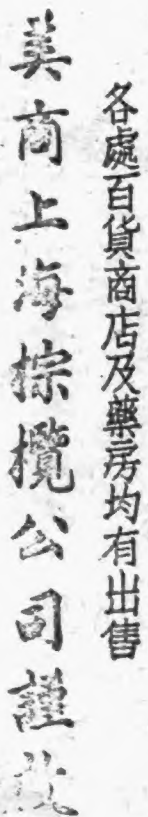 各處百貨商店及藥房均有出售
美商上海棕欖公司謹啟